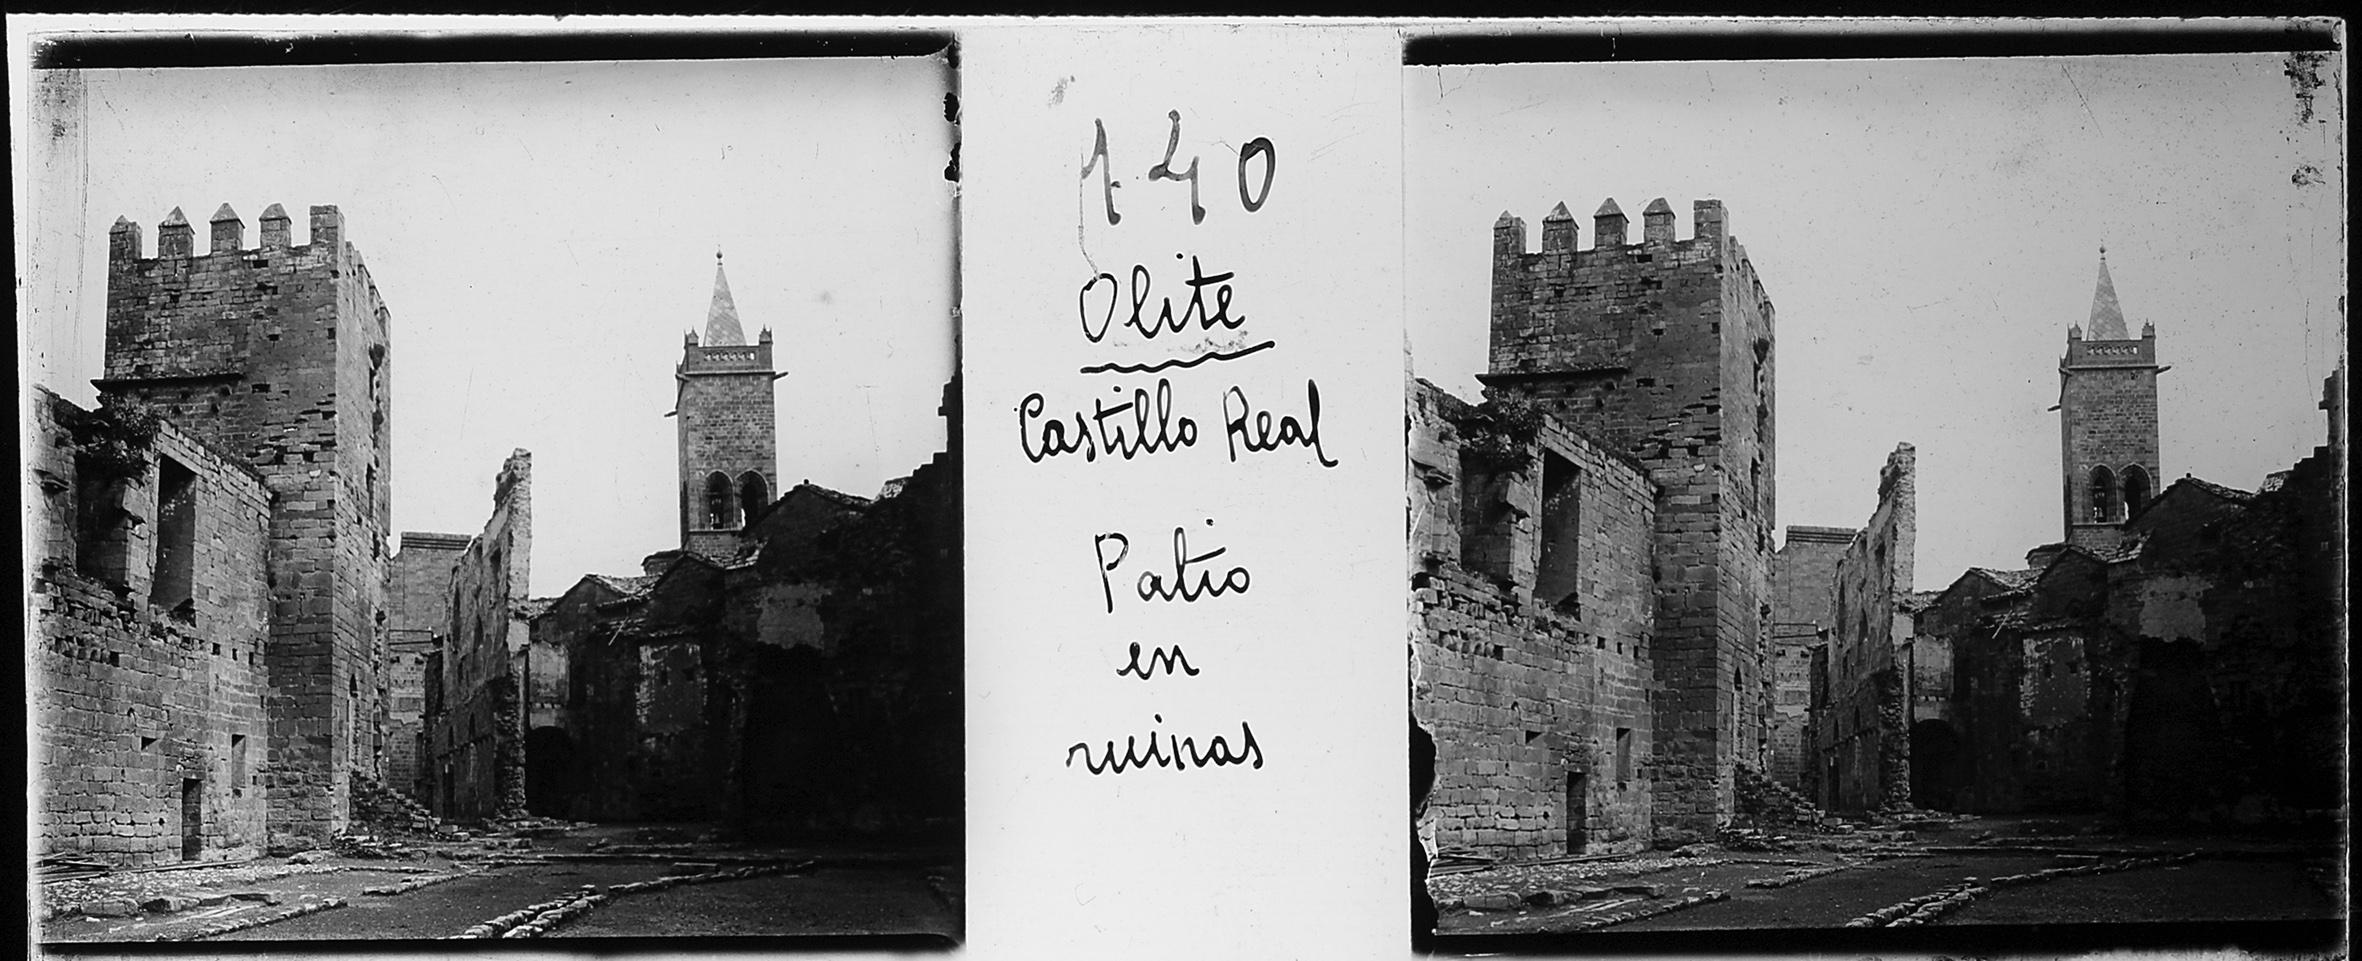 140
Olite
Castillo Real
Patio
en
ruinas